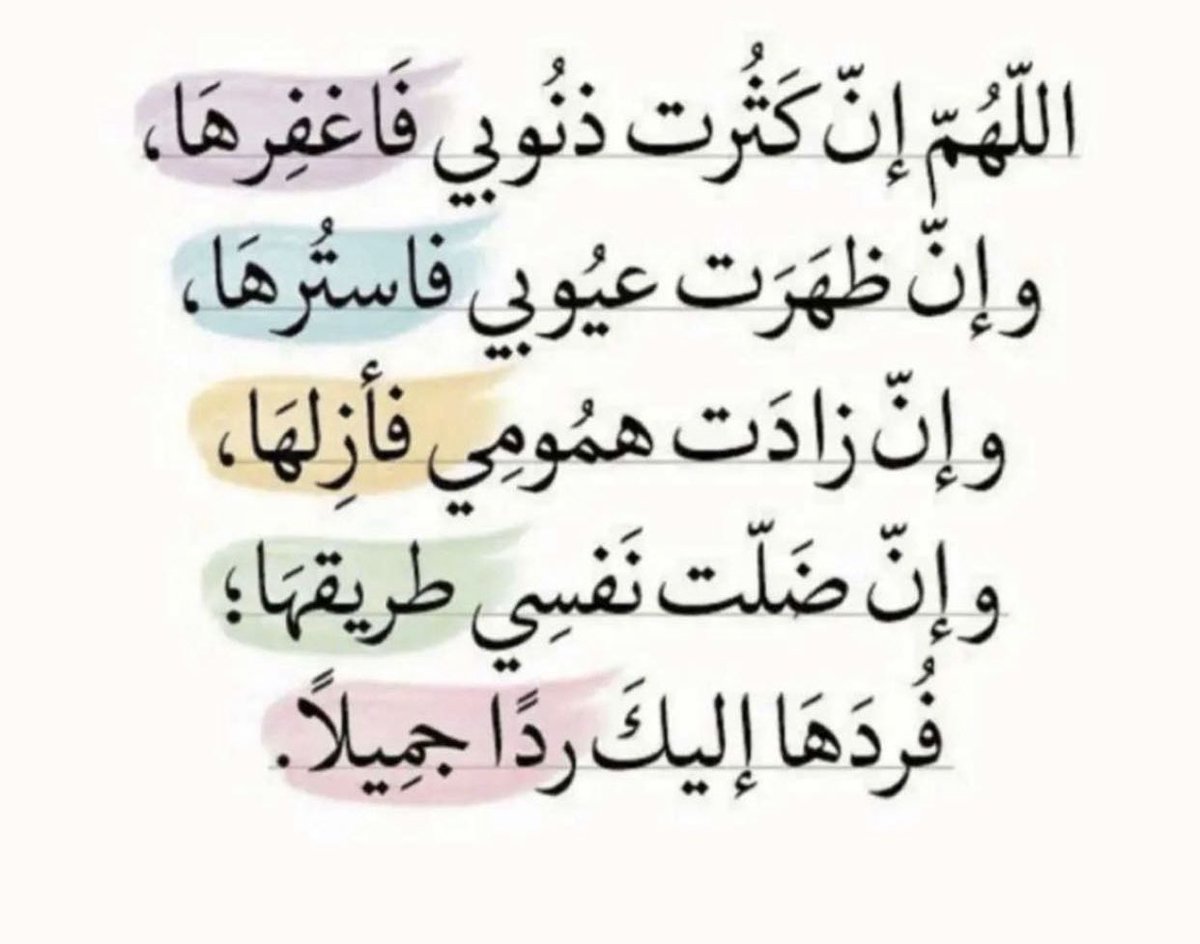 اللّهُمّ إنّ كَثُرت ذنُوبي فَاغفِرهَا،
وإنّ ظهَرَت عيُوبي فاستُرهَا،
وإنّ زادَت همُومِي فأزِلهَا،
وإنّ ضَلّت نَفسِي طريقهَا؛
فُردَهَا إليكَ ردًا جمِيلاً.